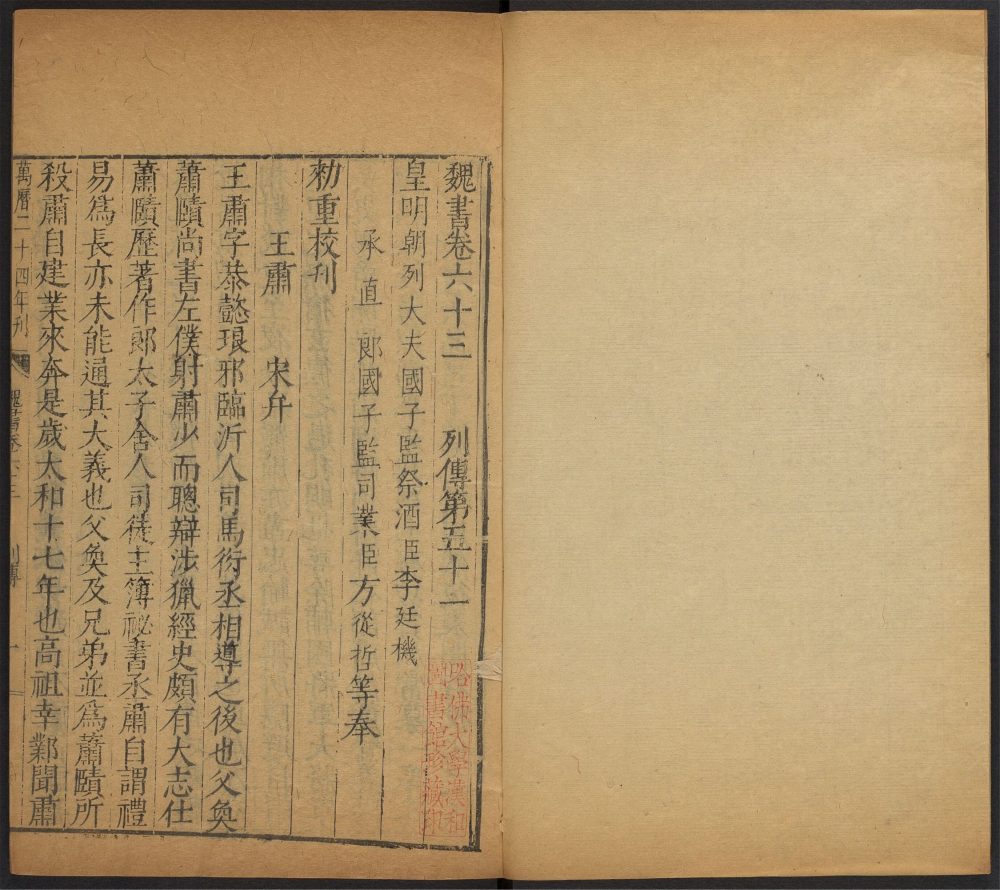 魏書卷六十三 列傳第五十一
皇明朝列大夫國子監祭酒臣李廷機
承直郎國子監司業臣方從哲等奉
勑重校刊
王肅 宋弁
王肅字恭懿琅邪臨沂人司馬衍丞相導之後也父奐
蕭賾尚書左僕射肅少而聰辯涉獵經史頗有大志仕
蕭賾歷著作郎太子舍人司徒主簿祕書丞肅自謂禮
易爲長亦未能通其大義也父奐及兄弟並爲蕭賾所
殺肅自建業來奔是歲太和十七年也高祖幸鄴聞肅
萬曆二十四年刊 魏書卷六十三 列傳 一
哈佛大學漢和
圖書館珍藏印